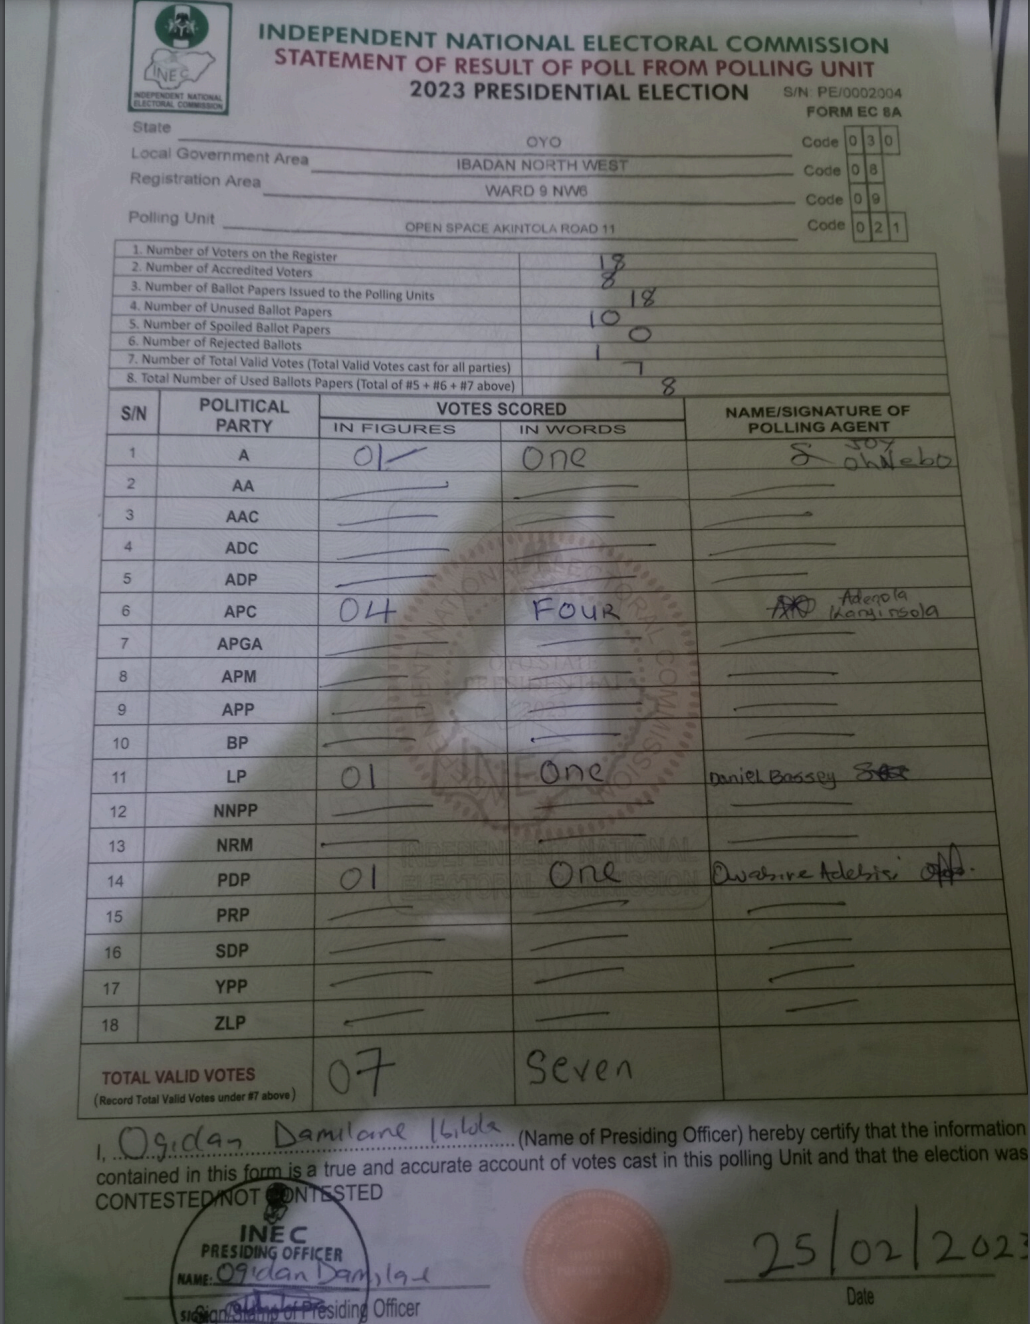 INDEPENDENT NATIONAL ELECTORAL COMMISSION
STATEMENT OF RESULT OF POLL FROM POLLING UNIT
2023 PRESIDENTIAL ELECTION S/N: PE/0002004
FORM EC 8A
INEC
INDEPENDENT NATIONAL
ELECTORAL COMMISSION
State OYO Code 0 3 0
Local Government Area IBADAN NORTH WEST Code 0 8
Registration Area WARD 9 NW6 Code 0 9
Polling Unit OPEN SPACE AKINTOLA ROAD 11 Code 0 2 1
1. Number of Voters on the Register 18
2. Number of Accredited Voters 8
3. Number of Ballot Papers Issued to the Polling Units 18
4. Number of Unused Ballot Papers 10
5. Number of Spoiled Ballot Papers 0
6. Number of Rejected Ballots 1
7. Number of Total Valid Votes (Total Valid Votes cast for all parties) 7
8. Total Number of Used Ballots Papers (Total of #5 + #6 + #7 above) 8
S/N POLITICAL PARTY VOTES SCORED NAME/SIGNATURE OF POLLING AGENT
IN FIGURES IN WORDS
1 A 01 One JOY
2 AA
3 AAC
4 ADC
5 ADP
6 APC 04 FOUR Adenola
7 APGA
8 APM
9 APP
10 BP
11 LP 01 One Daniel Bassey
12 NNPP
13 NRM
14 PDP 01 One Adebisi
15 PRP
16 SDP
17 YPP
18 ZLP
TOTAL VALID VOTES 07 Seven
(Record Total Valid Votes under #7 above)
I, Ogidan Damilare (Name of Presiding Officer) hereby certify that the information
contained in this form is a true and accurate account of votes cast in this polling Unit and that the election was
CONTESTED/NOT CONTESTED
INEC
PRESIDING OFFICER
NAME: Ogidan
25/02/2023
Sign/Stamp of Presiding Officer Date